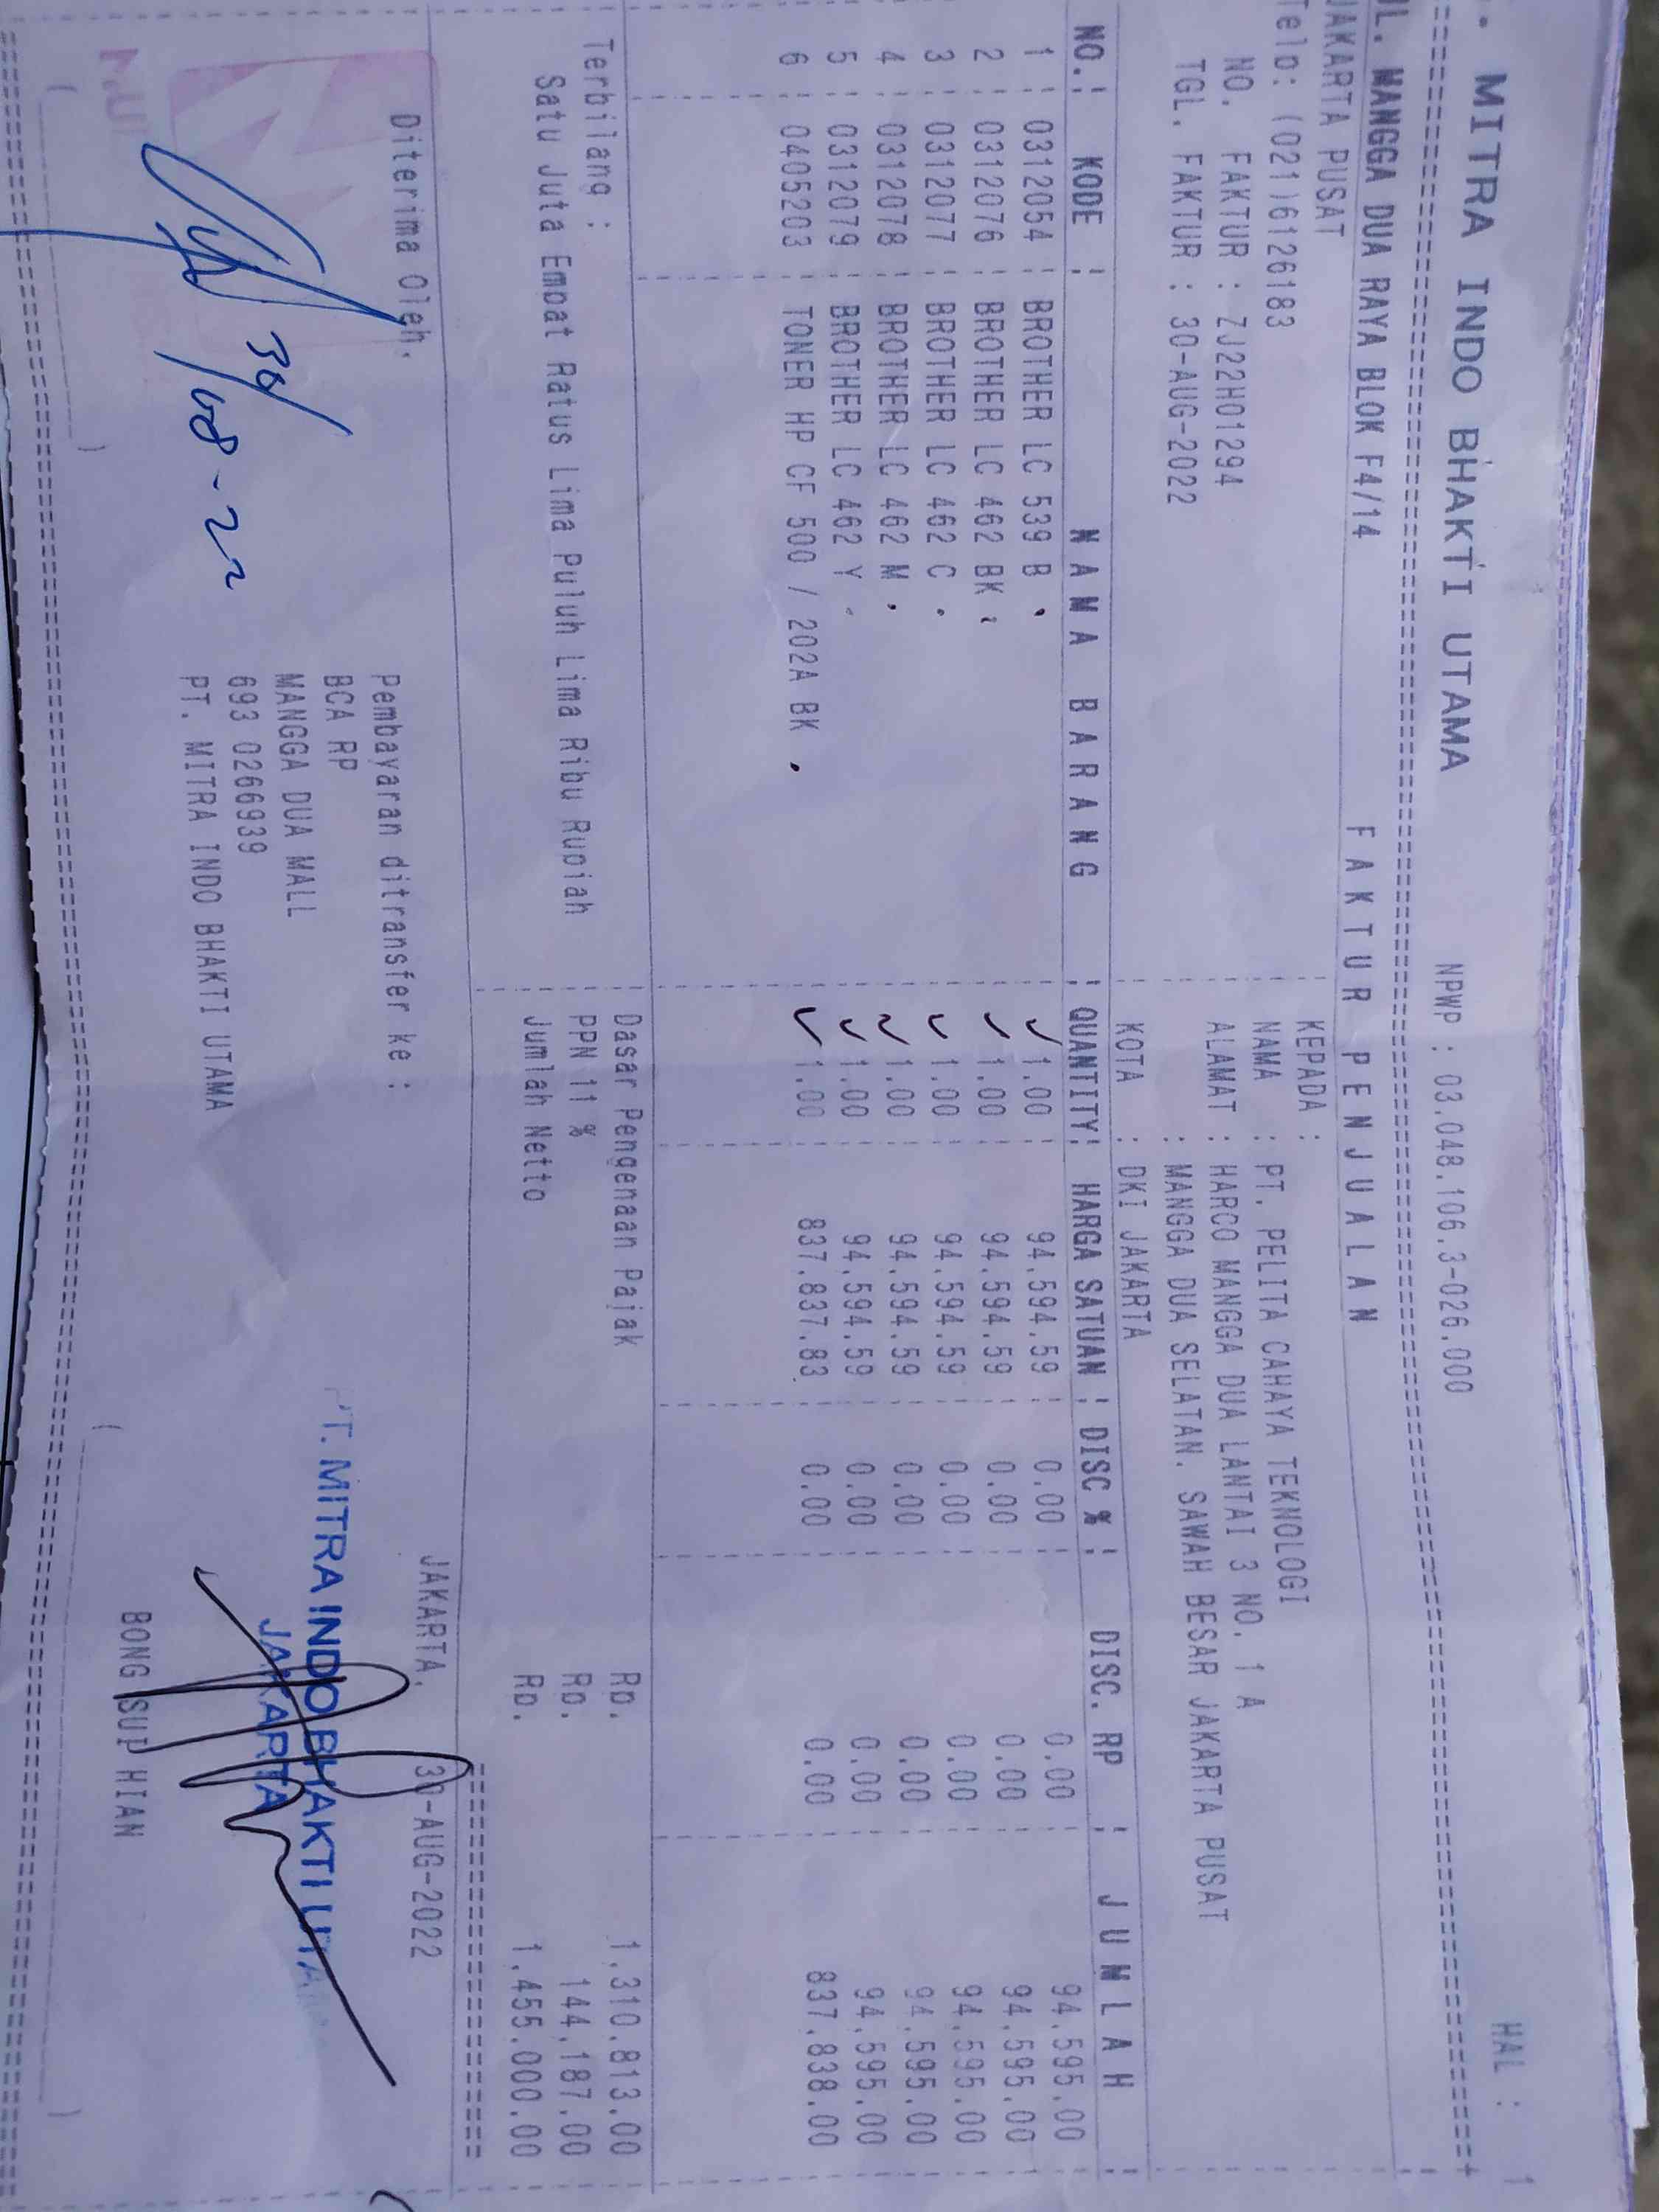 MITRA INDO BHAKTI UTAMA NPWP : 03.048.106.3-026.000 HAL : 1
JL. MANGGA DUA RAYA BLOK F4/14 FAKTUR PENJUALAN
JAKARTA PUSAT KEPADA :
Telp: (021)6126183 NAMA : PT. PELITA CAHAYA TEKNOLOGI
NO. FAKTUR : ZJ22H01294 ALAMAT : HARCO MANGGA DUA LANTAI 3 NO. 1 A
TGL. FAKTUR : 30-AUG-2022 : MANGGA DUA SELATAN. SAWAH BESAR JAKARTA PUSAT
KOTA : DKI JAKARTA
NO. KODE NAMA BARANG QUANTITY HARGA SATUAN DISC % DISC. RP JUMLAH
1 0312054 BROTHER LC 539 B 1.00 94.594.59 0.00 0.00 94.595.00
2 0312076 BROTHER LC 462 BK 1.00 94.594.59 0.00 0.00 94.595.00
3 0312077 BROTHER LC 462 C 1.00 94.594.59 0.00 0.00 94.595.00
4 0312078 BROTHER LC 462 M 1.00 94.594.59 0.00 0.00 94.595.00
5 0312079 BROTHER LC 462 Y 1.00 94.594.59 0.00 0.00 94.595.00
6 0405203 TONER HP CF 500 / 202A BK 1.00 837.837.83 0.00 0.00 837.838.00
Terbilang : Dasar Pengenaan Pajak Rp. 1.310.813.00
Satu Juta Empat Ratus Lima Puluh Lima Ribu Rupiah PPN 11 % Rp. 144.187.00
Jumlah Netto Rp. 1.455.000.00
Diterima Oleh. Pembayaran ditransfer ke : JAKARTA. 30-AUG-2022
BCA RP
MANGGA DUA MALL
693 0266939
PT. MITRA INDO BHAKTI UTAMA
30/08-22
PT. MITRA INDO BHAKTI UTAMA
JAKARTA
BONG SUI HIAN